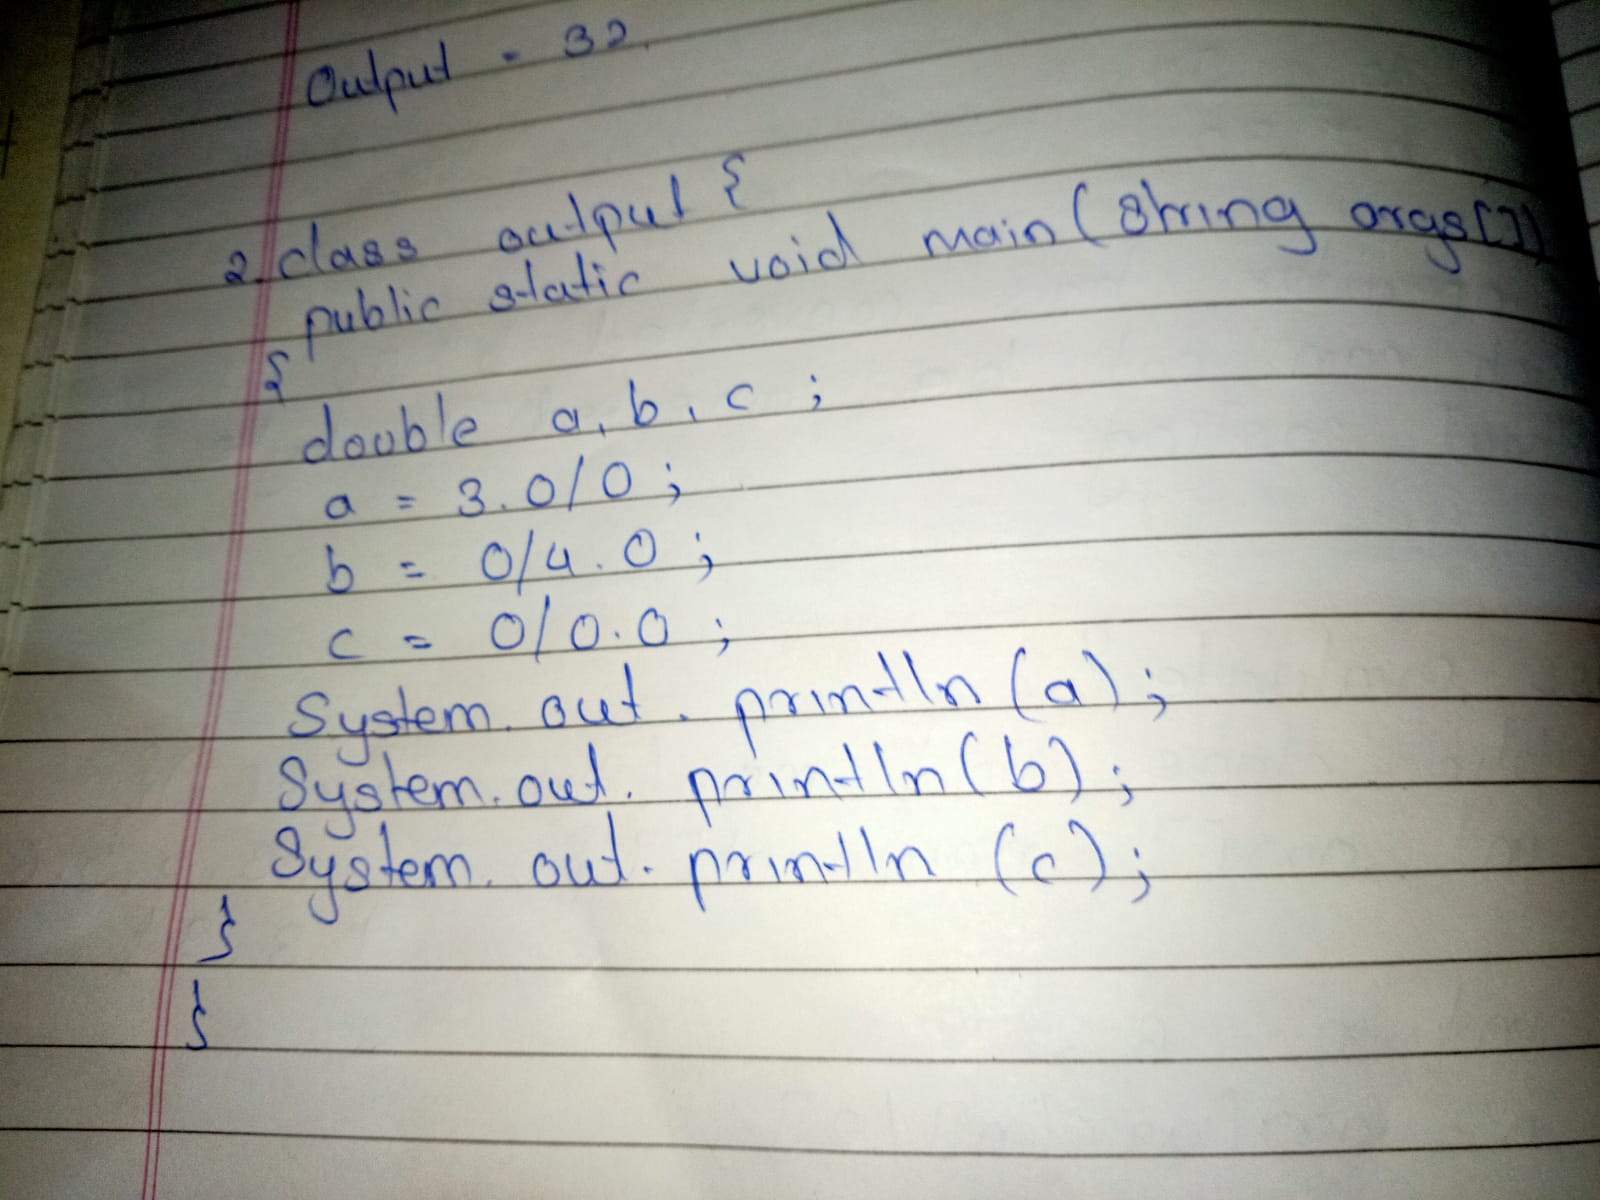 Output - 32.
2. class output {
public static void main (String args[])
{
double a, b, c ;
a = 3.0/0 ;
b = 0/4.0 ;
c = 0/0.0 ;
System. out. println (a) ;
System. out. println (b) ;
System. out. println (c) ;
}
}